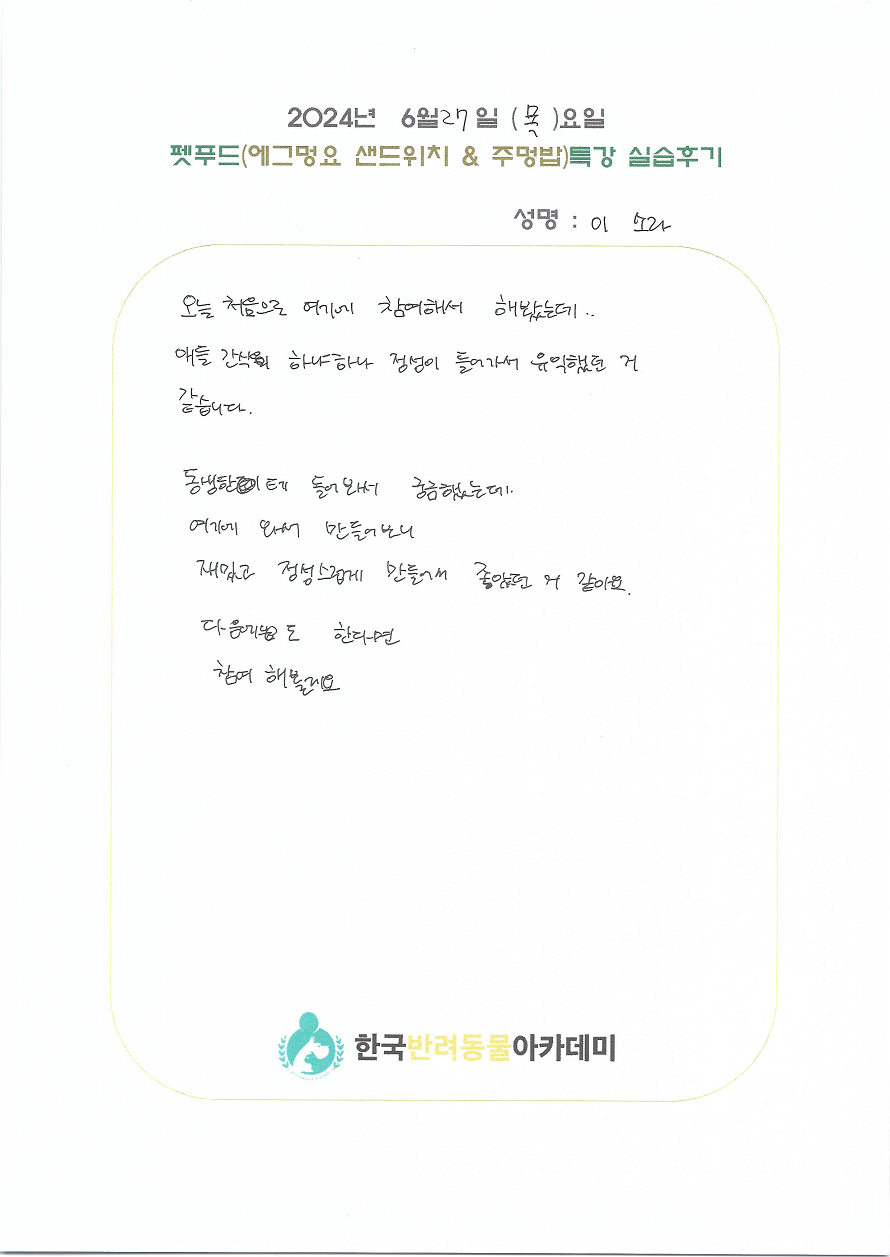 2024년 6월27일 (목)요일
펫푸드(에그멍요 샌드위치 & 주멍밥)특강 실습후기
성명 : 이 소라
오늘 처음으로 여기에 참여해서 해봤는데..
애들 간식의 하나하나 정성이 들어가서 유익했던 거
같습니다.
동생한테 들어와서 궁금했는데..
여기에 와서 만들어보니
재밌고 정성스럽게 만들어서 좋았던 거 같아요.
다음에도 한다면
참여 해볼래요
한국반려동물아카데미